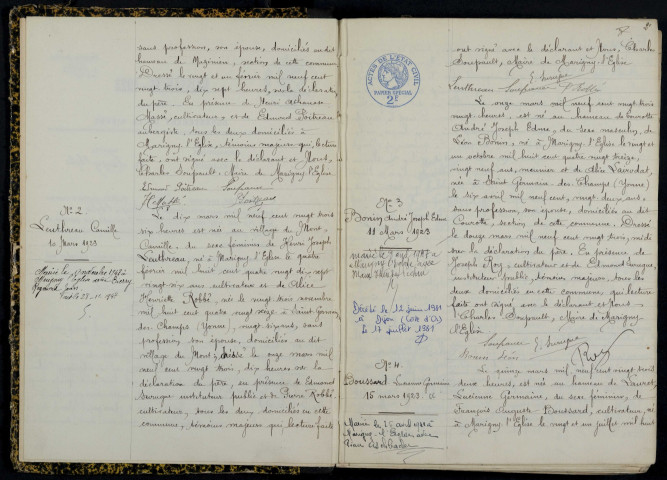 sans profession, son épouse, domiciliés audit
hameau de Mazinien, section de cette commune
Dressé le vingt et un février mil neuf cent
vingt trois, dix sept heures, sur la déclaration
du père. En présence de Henri Athanase
Massé, cultivateur, et de Edmond Poitreau
aubergiste, tous les deux domiciliés à
Marigny l'Eglise, témoins majeurs qui, lecture
faite, ont signé avec le déclarant et Nous,
Charles Soupault, Maire de Marigny l'Eglise
N° 2
Leuthreau Camille
10 Mars 1923
Le dix mars mil neuf cent vingt trois
six heures est née au village du Mont
Camille, du sexe féminin de Henri Joseph
Leuthreau, né à Marigny l'Eglise le quatre
février mil huit cent quatre vingt dix sept
vingt six ans cultivateur et de Alice
Henriette Robbé, née le vingt trois novembre
mil huit cent quatre vingt seize à Saint Germain
des Champs (Yonne), vingt six ans, sans
profession, son épouse, domiciliés au dit
village du Mont, Dressé le onze mars mil
neuf cent vingt trois, dix heures sur la
déclaration du père, en présence de Edmond
Suruque instituteur public et de Pierre Robbé
cultivateur, tous les deux domiciliés en cette
commune, témoins majeurs qui lecture faite
ACTES DE L'ETAT CIVIL
PAPIER SPECIAL
2F
ont signé avec le déclarant et Nous, Charles
Soupault, Maire de Marigny l'Eglise
Leuthreau
N° 3
Bonin André Joseph Edme
11 Mars 1923
Décédé le 12 juin 1981
à Dijon (Côte d'Or)
Le 17 juillet 1981
Le onze mars mil neuf cent vingt trois
vingt heures, est né au hameau de Courotte
André Joseph Edme, du sexe masculin, de
Léon Bonin, né à Marigny l'Eglise le vingt et
un octobre mil huit cent quatre vingt treize,
vingt neuf ans, meunier et de
née à Saint Germain des Champs (Yonne)
le six avril mil neuf cent, vingt deux ans,
sans profession, son épouse, domiciliés au dit
Courotte, section de cette commune. Dressé
le douze mars mil neuf cent vingt trois, midi
sur la déclaration du père. En présence de
Joseph Roy, cultivateur et de Edmond Suruque,
instituteur public, témoins majeurs, tous les
deux domiciliés en cette commune, qui lecture
faite ont signé avec le déclarant et Nous
Charles Soupault, Maire de Marigny
l'Eglise
Roy
N° 4
Boussard Lucienne Germaine
15 mars 1923
Le quinze mars mil neuf cent vingt trois
deux heures, est née au hameau de
Lucienne Germaine, du sexe féminin, de
François Auguste Boussard, cultivateur, né
à Marigny l'Eglise le vingt et un juillet mil huit